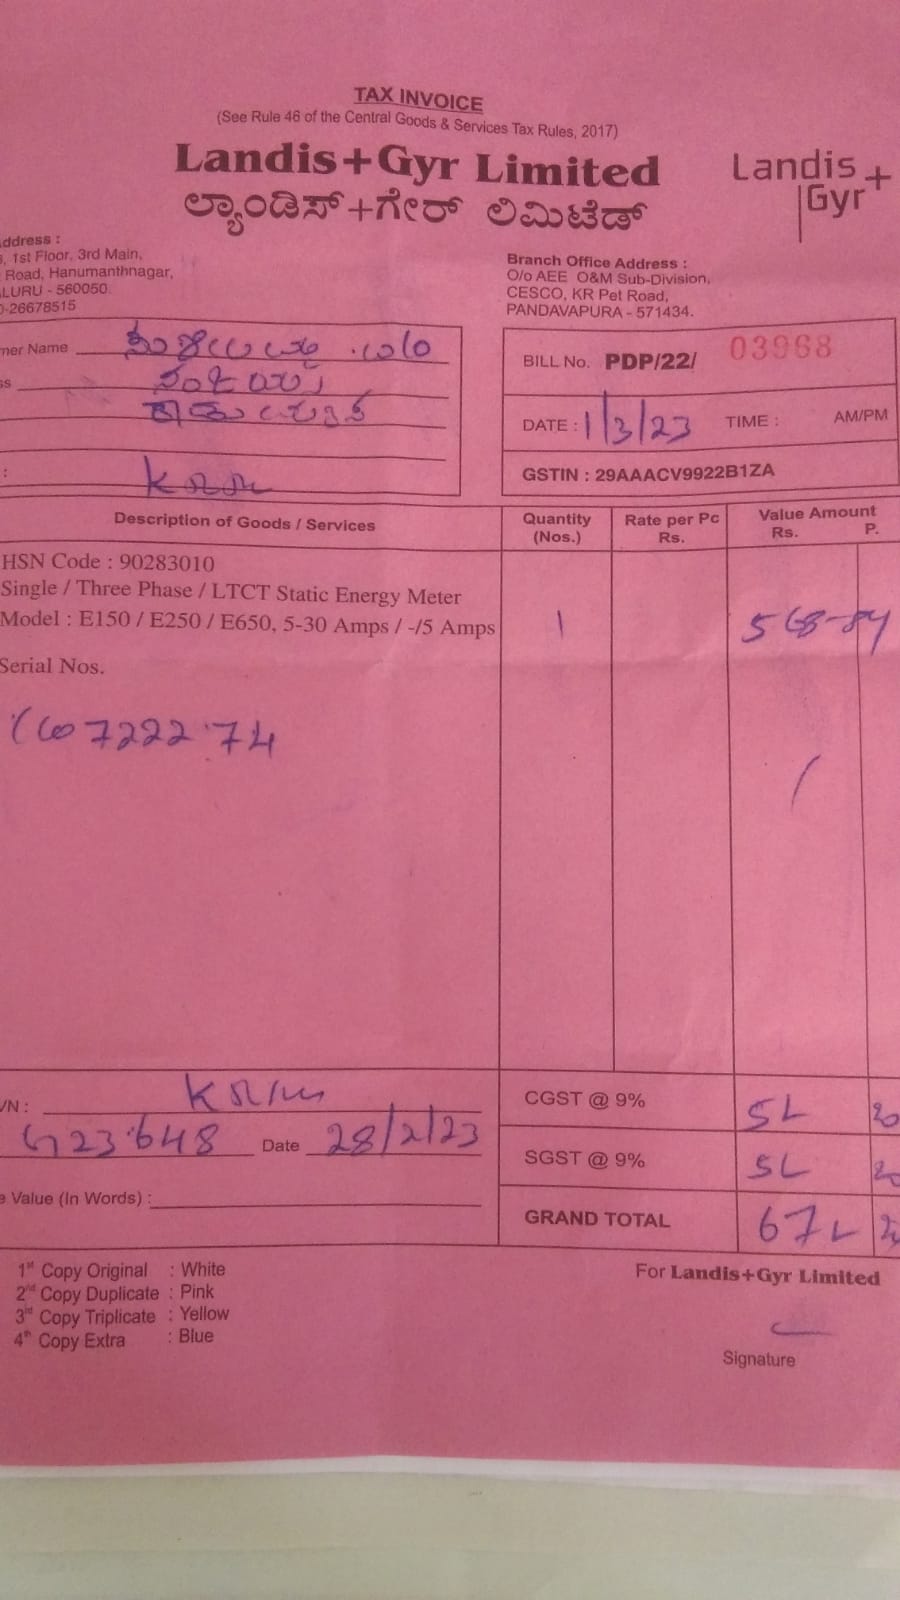 TAX INVOICE
(See Rule 46 of the Central Goods & Services Tax Rules, 2017)
Landis+Gyr Limited
ಲ್ಯಾಂಡಿಸ್+ಗೇರ್ ಲಿಮಿಟೆಡ್
Landis+
Gyr
ddress :
, 1st Floor, 3rd Main,
Road, Hanumanthnagar,
LURU - 560050.
-26678515
Branch Office Address :
O/o AEE O&M Sub-Division,
CESCO, KR Pet Road,
PANDAVAPURA - 571434.
mer Name
ss
:
BILL No. PDP/22/ 03968
DATE : 1/3/23 TIME : AM/PM
GSTIN : 29AAACV9922B1ZA
Description of Goods / Services
Quantity (Nos.)
Rate per Pc Rs.
Value Amount Rs. P.
HSN Code : 90283010
Single / Three Phase / LTCT Static Energy Meter
Model : E150 / E250 / E650, 5-30 Amps / -/5 Amps 1 568-84
Serial Nos.
VN :
Date 28/2/23
e Value (In Words) :
CGST @ 9%
SGST @ 9%
GRAND TOTAL
1st Copy Original : White
2nd Copy Duplicate : Pink
3rd Copy Triplicate : Yellow
4th Copy Extra : Blue
For Landis+Gyr Limited
Signature